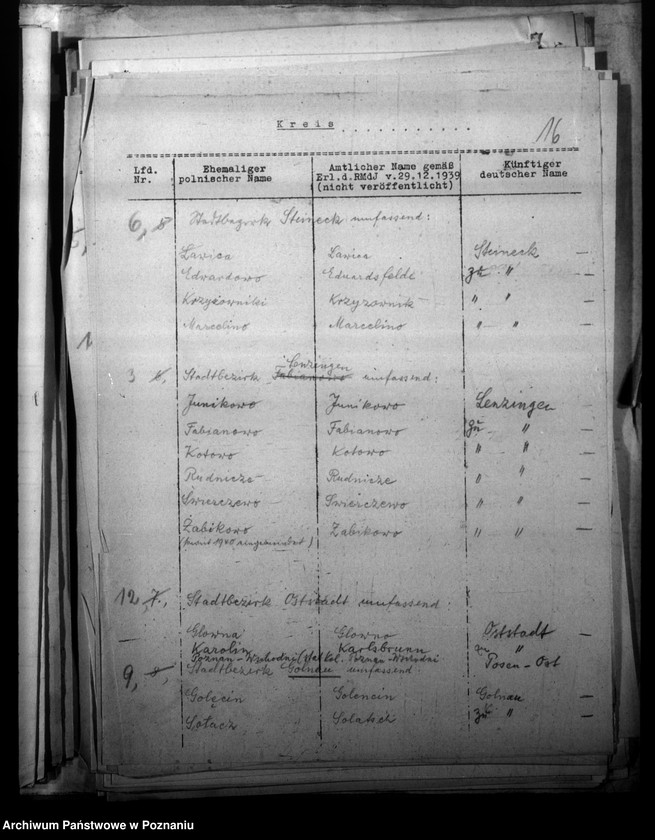 16
Kreis............
Lfd. Nr. Ehemaliger polnischer Name Amtlicher Name gemäß Erl.d.RMdJ v.29.12.1939 (nicht veröffentlicht) Künftiger deutscher Name
6, 8 Stadtbezirk Steineck umfassend:
Ławica Lawica Steineck —
Edwardowo Eduardsfelde zu " —
Krzyżowniki Krzyzownik " " —
Marcelino Marcelino " " —
Lenzingen
3 6, Stadtbezirk Fabianowo umfassend:
Junikowo Junikowo Lenzingen
Fabianowo Fabianowo zu " —
Kotowo Kotowo " " —
Rudnicze Rudnicze " "
Świerczewo Swierczewo " " —
Żabikowo Zabikowo " " —
(1940 eingemeindet)
12 7, Stadtbezirk Oststadt umfassend:
Główna Glowno Oststadt —
Karolin Karlsbrunn zu "
Poznan-Wschodni Poznan-Wschodni Posen-Ost
9, 8, Stadtbezirk Golnau umfassend
Golęcin Golencin Golnau —
Sołacz Solatsch zu " —
Archiwum Państwowe w Poznaniu